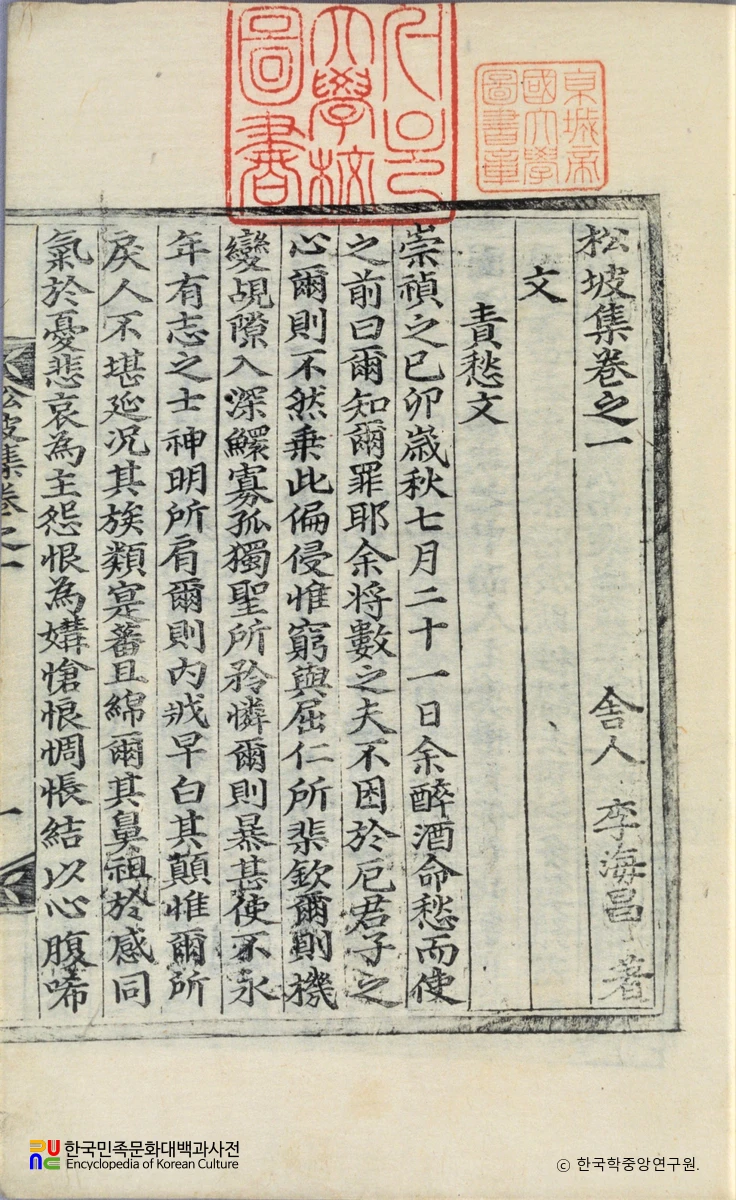 서울大學校圖書
京城帝國大學圖書章
松坡集卷之一
舍人 李海昌 著
文
責愁文
崇禎之已卯歲秋七月二十一日余醉酒命愁而使
之前曰爾知爾罪耶余将數之夫不困於戹君子之
心爾則不然乗此偏侵惟窮與屈仁所棐欽爾則機
變覘隙入深鰥寡孤獨聖所矜憐爾則暴甚使不永
年有志之士神明所肩爾則內戕早白其顚惟爾所
戾人不堪延况其族類寔蕃且綿爾其鼻祖於感同
氣於憂悲哀為主怨恨為媾愴悢惆悵結以心腹唏
松坡集卷之一
一
한국민족문화대백과사전
Encyclopedia of Korean Culture
© 한국학중앙연구원.